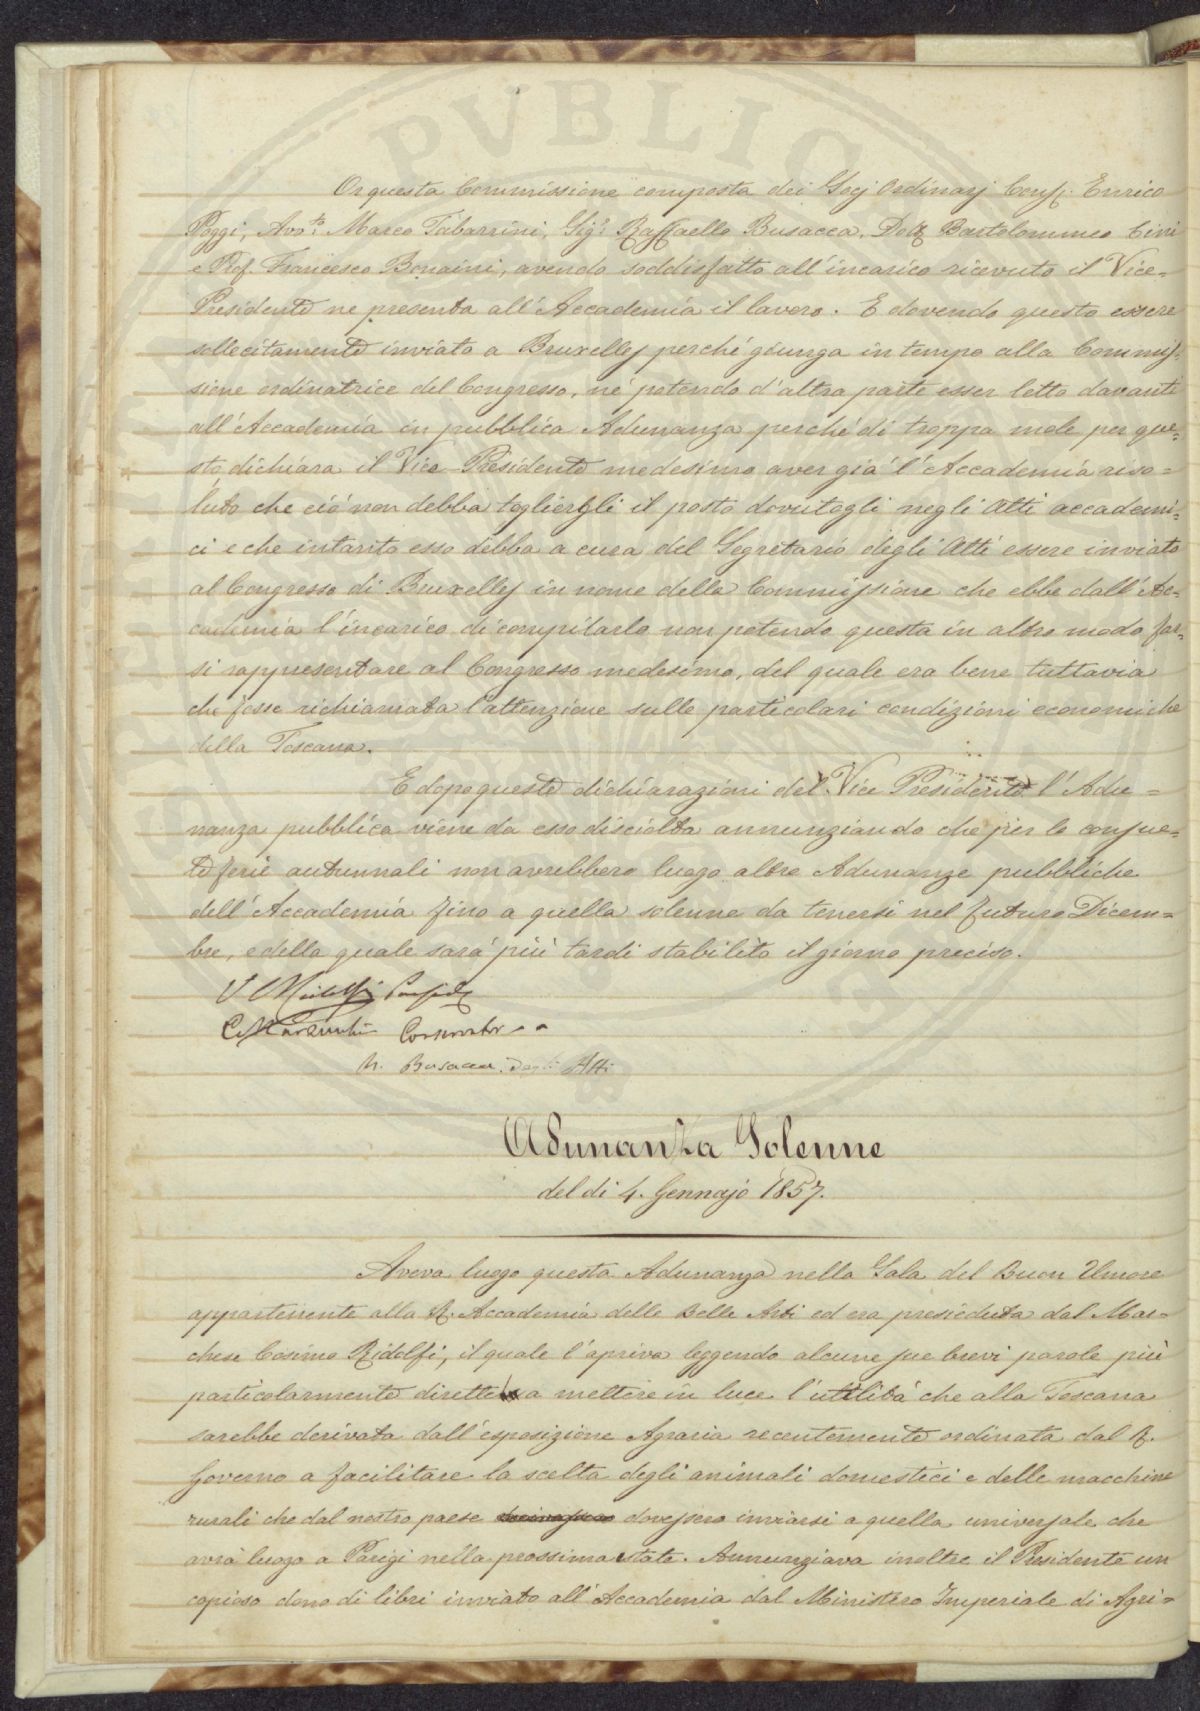 Or questa Commissione composta dei Socj Ordinarj Cons. Enrico
Poggi, Avo.to Marco Tabarrini, Sig.r Raffaello Busacca, Dott. Bartolommeo Cini
e Prof. Francesco Bonaini, avendo soddisfatto all'incarico ricevuto il Vice-
Presidente ne presenta all'Accademia il lavoro. E dovendo questo essere
sollecitamente inviato a Bruxelles perché giunga in tempo alla Commis-
sione ordinatrice del Congresso, né potendo d'altra parte esser letto davanti
all'Accademia in pubblica Adunanza perché di troppa mole per que-
sto dichiara il Vice-Presidente medesimo aver già l'Accademia riso-
luto che ciò non debba togliergli il posto dovutogli negli Atti accademi-
ci e che intanto esso debba a cura del Segretario degli Atti essere inviato
al Congresso di Bruxelles in nome della Commissione che ebbe dall'Ac-
cademia l'incarico di compilarlo non potendo questa in altro modo far-
si rappresentare al Congresso medesimo, del quale era bene tuttavia
che fosse richiamata l'attenzione sulle particolari condizioni economiche
della Toscana.
E dopo queste dichiarazioni del Vice Presidente l'Adu-
nanza pubblica viene da esso disciolta annunziando che per le consue-
te ferie autunnali non avrebbero luogo altre Adunanze pubbliche
dell'Accademia fino a quella solenne da tenersi nel futuro Dicem-
bre, e della quale sarà più tardi stabilito il giorno preciso.
R. Busacca. degli Atti
Adunanza Solenne
del dì 4. Gennajo 1857.
Aveva luogo questa Adunanza nella Sala del Buon Umore
appartenente alla R. Accademia delle Belle Arti ed era presieduta dal Mar-
chese Cosimo Ridolfi, il quale l'apriva leggendo alcune sue brevi parole più
particolarmente dirette a mettere in luce l'utilità che alla Toscana
sarebbe derivata dall'esposizione Agraria recentemente ordinata dal R.
Governo a facilitare la scelta degli animali domestici e delle macchine
rurali che dal nostro paese dovessero inviarsi a quella universale che
avrà luogo a Parigi nella prossima state. Annunziava inoltre il Presidente un
copioso dono di libri inviato all'Accademia dal Ministero Imperiale di Agri-